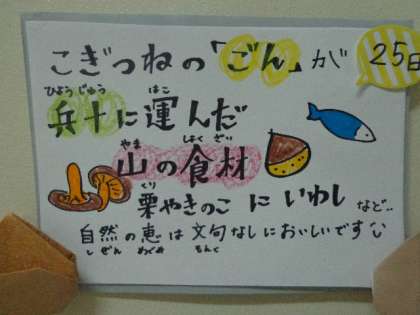 こぎつねの「ごん」が
25日
ひょうじゅう はこ
兵十に運んだ
やま しょくざい
山の食材
くり
栗やきのこ にいわし など…
自然の恵は文句なしにおいしいです
しぜん めぐみ もんく